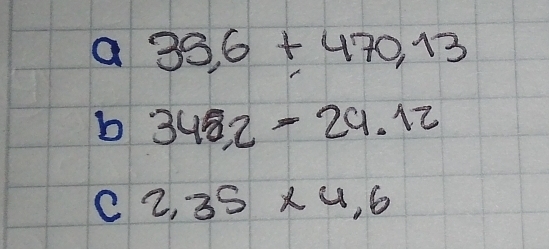 a 38,6 + 470,13
b 348,2 - 29.12
c 2,35 x 4,6